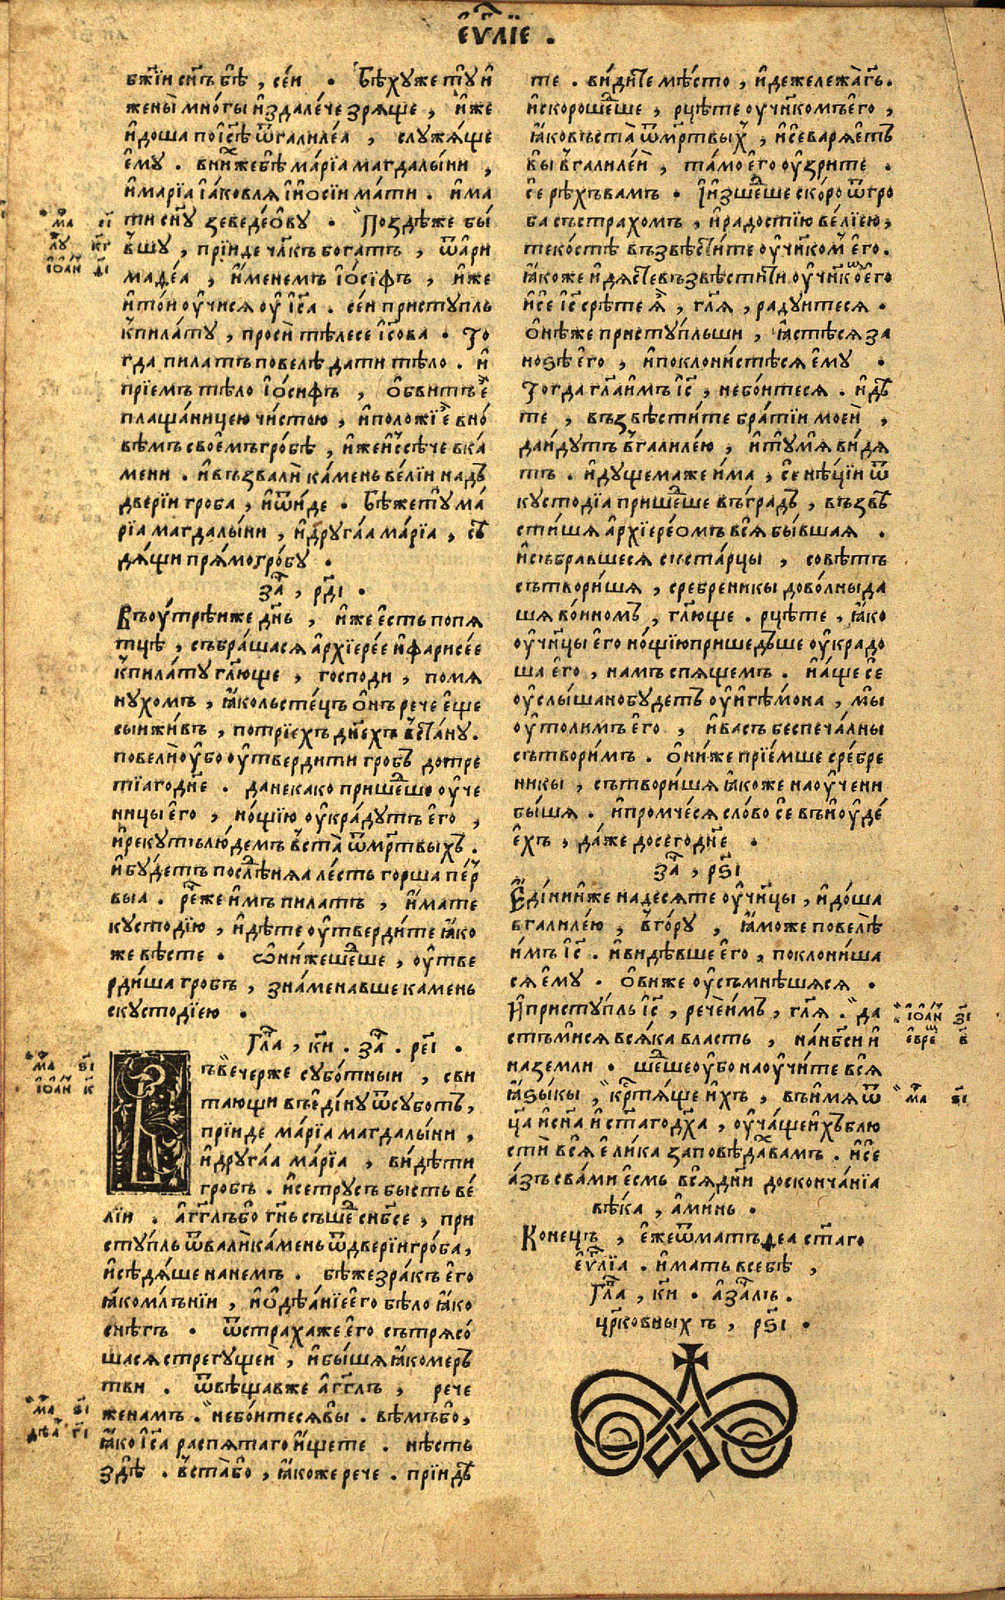 є҆ѵⷢ҇лїе .
бж҃їи сн҃ъ бѣ̀ , се́и . Бѣ́хꙋже тꙋ̀ и҆
жены̀ мно́гы и҆здале́че зрѧ́ще , и҆же
и҆доша по і҆с҃ѣ ѿгалиле́а , слꙋжѧ́ще
є҆мꙋ̀ . вни́хже бѣ̀ ма́рїа магдалы́ни ,
и҆ марїа і҆а́ковлѧ и҆ і҆ѡсі́и ма́ти . и҆ ма
ти сн҃ꙋ зеведе́ѡвꙋ . Поздѣ́же бы́
вшꙋ , прїиде чл҃къ богатъ , ѿ а҆ри
маде́а , и҆менемъ і҆ѡ́сїфъ , и҆же
и҆то́и оу҆чисѧ оу҆ і҆с҃а . се́и пристꙋпль
кꙿпила́тꙋ , просѝ тѣлесе і҆с҃ова . То
гда пилатъ повелѣ̀ дати тѣ́ло . и҆
прїемъ тѣ́ло і҆ѡ́сифъ , ѡ҆бви́тъ є҆
плаща́ницею чи́стою , и҆ положи́ є҆ вно́
вѣмъ своемъ гро́бѣ , и҆же и҆сѣче вка́
мени . и҆ възвалѝ ка́мень ве́лїи надъ
двери́и гроба , и҆ ѿи́де . Бѣ́же тꙋ̀ ма́
рїа магдалы́ни , и҆ дрꙋга́а ма́рїа , сѣ
дѧ́щи прѧ́мо гро́бꙋ .
за҃ , рд҃і .
Въоу́трїиже дн҃ь , и҆же є҆сть попѧ
тцѣ̀ , събра́шасѧ а҆рхїере́е и҆ фарисе́е
кꙿпила́тꙋ гл҃юще , господи , помѧ
нꙋхомъ , ꙗ҆ко льсте́цъ ѡ҆нъ рече є҆ще
сыи жи́въ , по трїехъ дн҃ехъ въста́нꙋ .
повелѝ оу҆бо оу҆твердити гробъ до тре
тїаго дн҃е . да некако прише́дше оу҆че
ницы є҆го̀ , но́щїю оу҆кра́дꙋтъ є҆го̀ ,
и҆ рекꙋтъ лю́демъ въста̀ ѿ мр҃твыхъ .
и҆ бꙋ́детъ послѣ́днѧѧ ле́сть горша пе́р
выа . ре́чеже и҆мъ пилатъ , и҆мате
кꙋстодїю , и҆дѣ́те оу҆тверди́те ꙗ҆ко
же вѣ́сте . ѡ҆ни́же ше́дше , оу҆тве
рди́ша гробъ , зна́менавше камень
скꙋстоді́ею .
Гла҃ , кн҃ . за҃ . ре҃і .
ъ вечерже сꙋбо́тныи , сви
тающи въ є҆ди́нꙋ ѿ сꙋботъ ,
прїиде ма́рїа магдалы́ни ,
и҆ дрꙋга́а ма́рїа , ви́дѣти
гробъ . и҆ се трꙋсъ бысть ве́
лїи . а҆гг҃лъ бо гн҃ь съше́д снб҃се , при
стꙋпль ѿвалѝ ка́мень ѿ двери́и гро́ба ,
и҆ сѣдѧ́ше на немъ . бѣ́же зра́къ є҆го
ꙗ҆ко мл҃ънїи , и҆ ѡ҆дѣ́анїе є҆го бѣ́ло ꙗ҆ко
снѣ́гъ . ѿ страха же є҆го сътрѧсо́
шасѧ стрегꙋщеѝ , и҆ бы́шѧ ꙗ҆ко мерꙿ
тви . ѿвѣща́вже а҆гг҃лъ , рече
женамъ . небо́итесѧ вы̀ . вѣмъ бо̀ ,
ꙗ҆ко і҆с҃а распѧтаго и҆щете . нѣ́сть
здѣ̀ . въста́ бо , ꙗ҆коже рече . прїидѣ
те . ви́дите мѣ́сто , и҆дѣже лежа̀ гь҃ .
и҆ скоро ше́дше , рцѣ́те оу҆чн҃комъ є҆го ,
ꙗ҆ко въста̀ ѿ мр҃твыхъ , и҆ се варѧ́етъ
вы вꙿгалиле́и , та́мо є҆го оу҆зрите .
се рѣхъ вамъ . И҆ и҆зше́дше ско́ро ѿ гро
ба съ страхомъ , и҆ ра́достїю ве́лїею ,
теко́стѣ възвѣстите оу҆чн҃комъ є҆го .
ꙗ҆коже и҆дѧсте възвѣсти́ти оу҆чн҃комъ є҆го
и҆ се і҆с҃ срѣ́те ѧ҆̀ , гл҃ѧ , ра́дꙋитесѧ .
ѡ҆нѣже пристꙋ́пльши , ꙗ҆стѣсѧ за
но́зѣ є҆го , и҆ поклони́стѣсѧ є҆мꙋ .
Тогда гл҃а и҆мъ і҆с҃ , небо́итесѧ . и҆дѣ
те , възвѣсти́те бра́тїи мое́и ,
да и҆дꙋтъ вꙿгалиле́ю , и҆ тꙋ́ мѧ ви́дѧ
тъ . и҆дꙋщемаже и҆ма , се нѣ́цїи ѿ
кꙋстодїа прише́дше въ гра́дъ , възвѣ
сти́шѧ а҆рхїере́омъ всѧ̀ бы́вшаа .
и҆ събравшесѧ съ ста́рцы , совѣтъ
сътвори́шѧ , сребреникы дово́лны да
шѧ во́иномъ , гл҃юще . рцѣ́те , ꙗ҆ко
оу҆чн҃цы є҆го но́щїю прише́дъше оу҆крадо
ша є҆го , намъ спѧщемъ . и҆ а́ще се
оу҆слы́шано бꙋдетъ оу҆ и҆ге́мона , мы̀
оу҆толимъ є҆го , и҆ васъ беспеча́лны
сътвори́мъ . ѡ҆ни́же прїе́мше сре́бре
никы , сътвори́шѧ ꙗ҆коже наоу́чени
бы́шѧ . и҆ промче́сѧ сло́во се въ и҆оуде́
є҆хъ , да́же до сего дн҃е .
за҃ , рѕ҃і
Є҆ді́нинже надесѧте оу҆чн҃цы , и҆до́ша
вгалиле́ю , вꙿго́рꙋ , ꙗ҆може повелѣ̀
и҆мъ і҆с҃ . и҆ ви́дѣвше є҆го , поклони́ша
сѧ є҆мꙋ . ѡ҆виже оу҆сѫмнѣ́шѧсѧ .
И҆ пристꙋпль і҆с҃ , рече́ и҆мъ , гл҃ѧ . да
стъмисѧ всѧ́ка власть , на нб҃си и҆
на земли . ше́дше оу҆бо наоу́чите всѧ
ꙗ҆зы́кы , крⷭ҇тѧще и҆хъ , въ и҆мѧ ѿ
ца҃ и҆ сн҃а и҆ ст҃аго дх҃а , оу҆ча́ще и҆хъ блю
стѝ всѧ̀ є҆ли́ка заповѣ́дахъ вамъ . и҆ се
а҆зъ с ва́ми є҆смь всѧ̀ дни до сконча́нїа
вѣ́ка , а҆ми́нь .
Конецъ , є҆же ѿ матѳеа ст҃аго
є҆ѵⷢ҇лїа . и҆мать всебѣ̀ ,
Гла҃ , кн҃ . а҆ за҃лъ .
црⷪ҇ковныхъ , рѕ҃і .